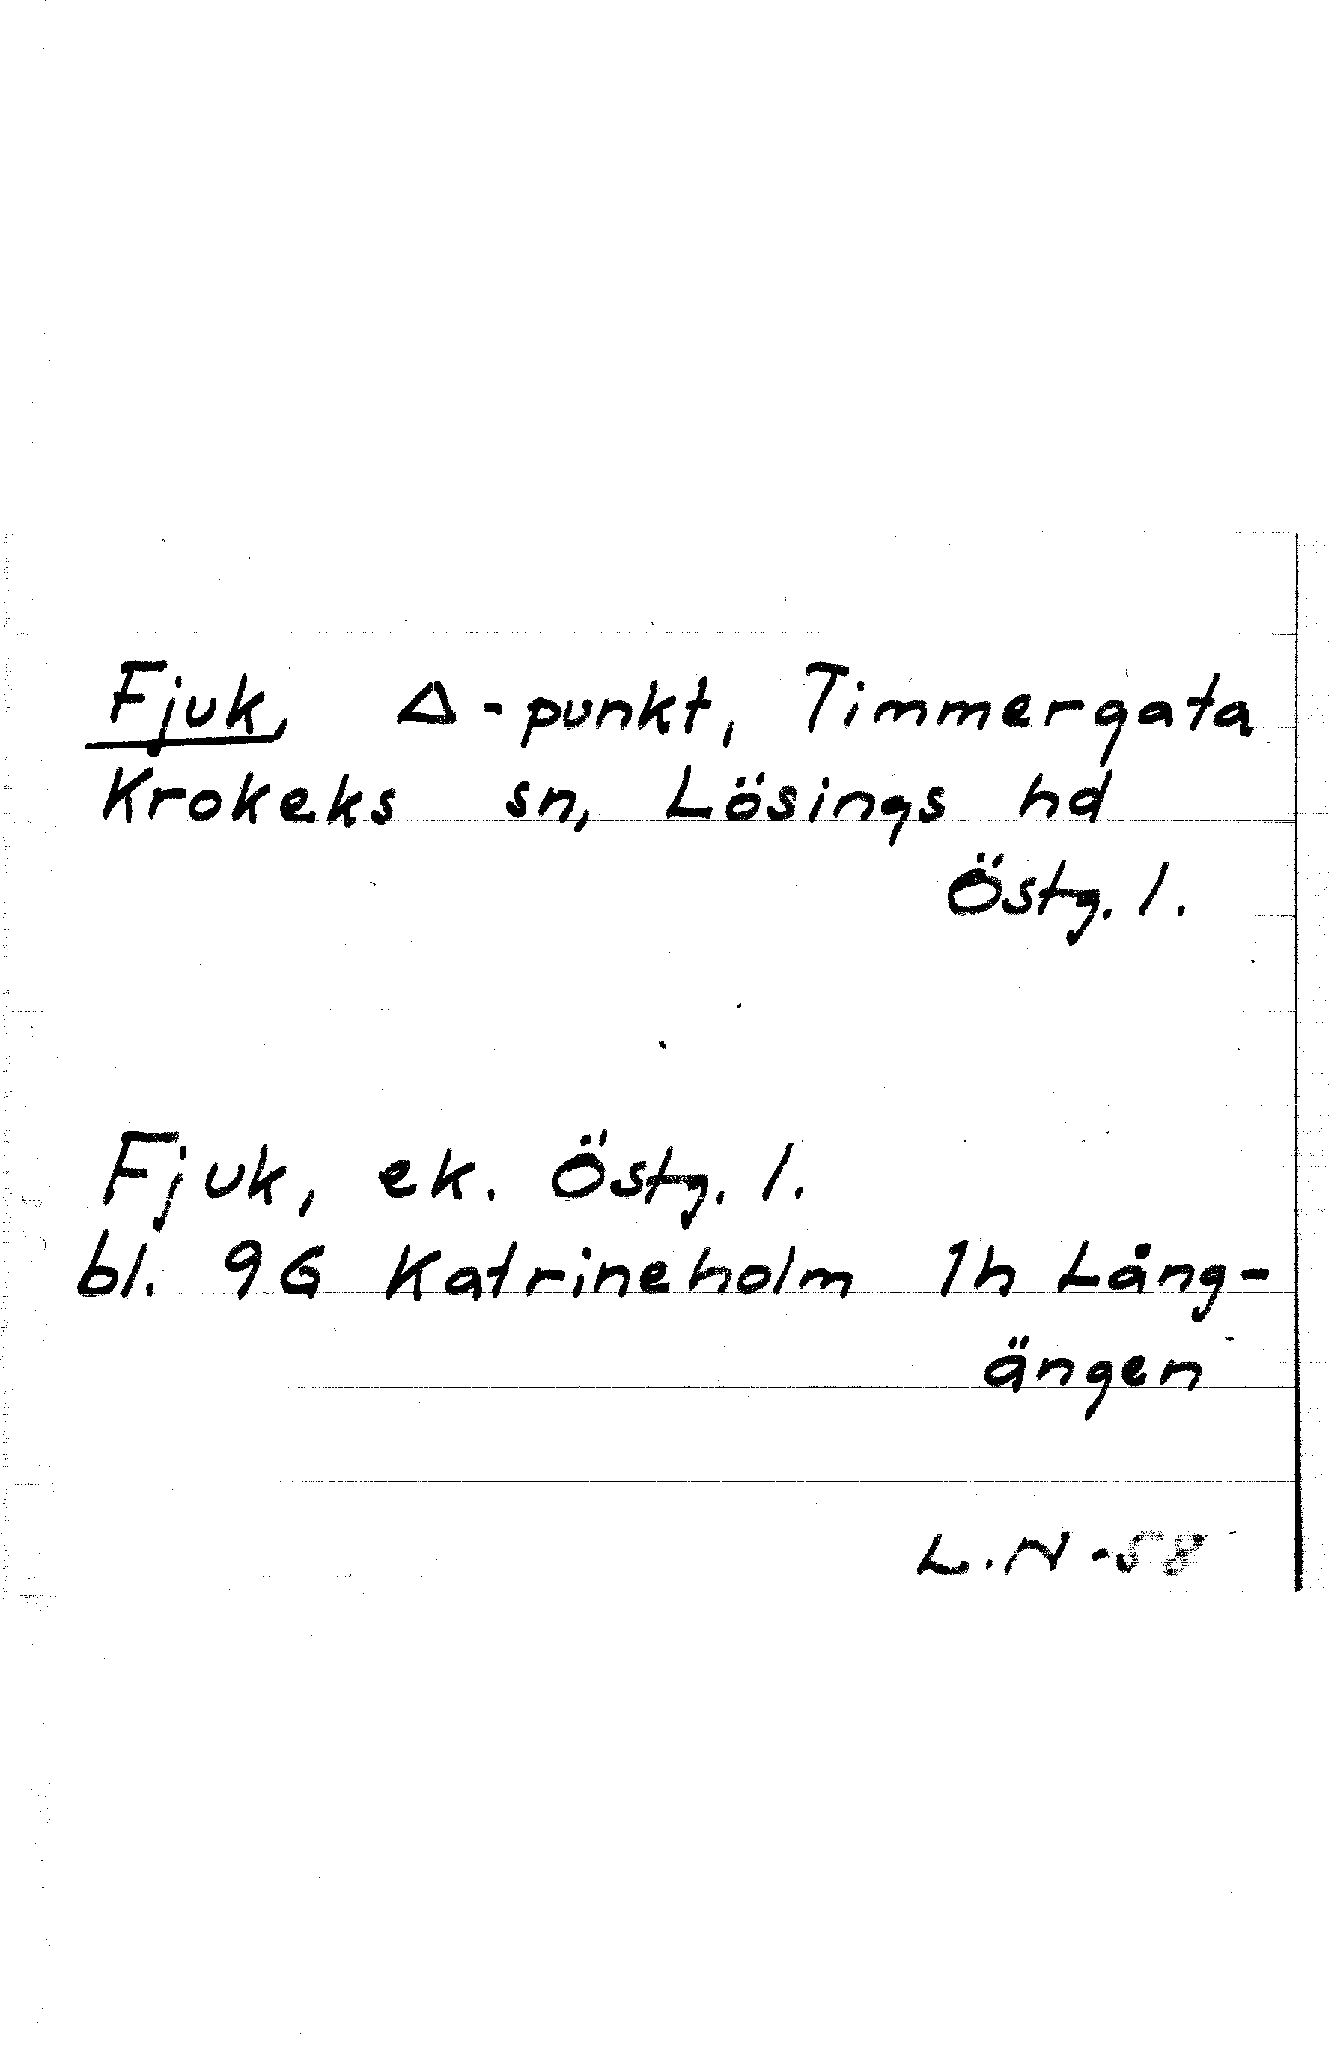 Fjuk, Δ-punkt, Timmergata
Krokeks sn, Lösings hd
Östg. l.
Fjuk, ek. Östg. l.
bl. 9G Katrineholm 1h Lång-
ängen
L.N -58